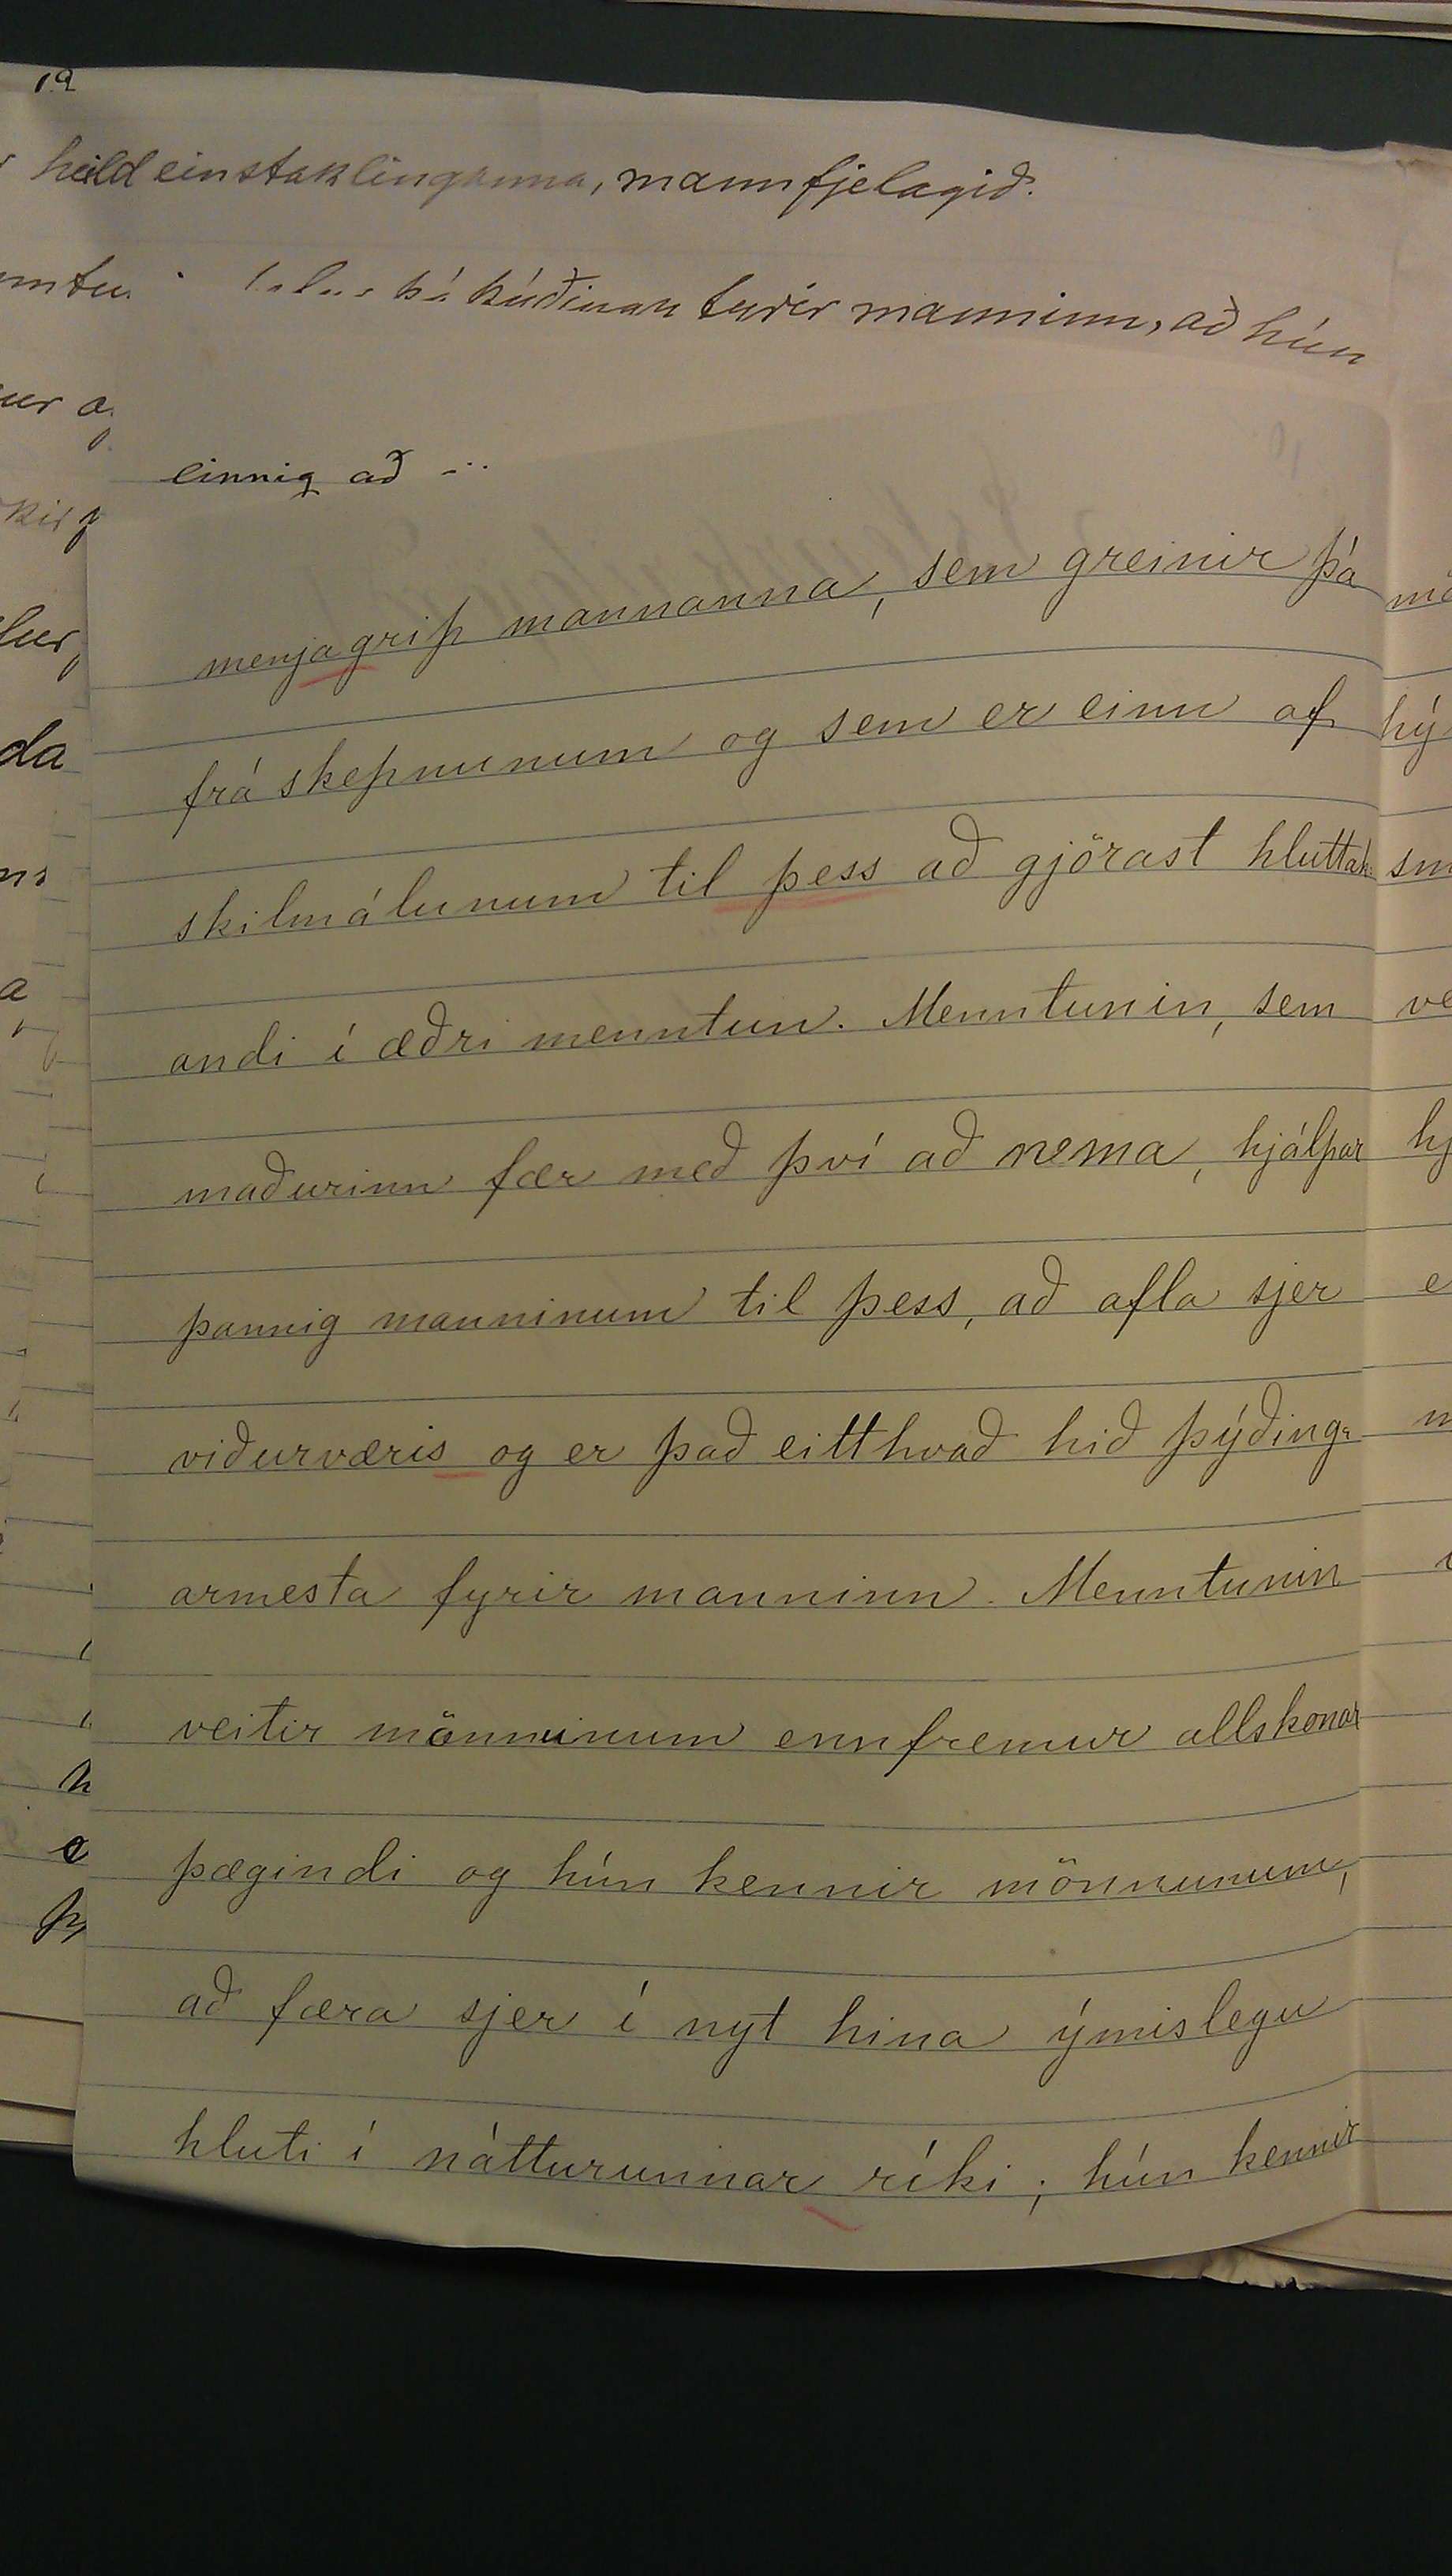 19
heild einstaklinganna, mannfjelagið.
þýðingu fyrir manninn, að hún
einnig að ...
menjagrip mannanna, sem greinir þá
frá skepnunum og sem er einn af
skilmálunum til þess að gjörast hluttak-
andi í æðri menntun. Menntunin, sem
maðurinn fær með því að nema, hjálpar
þannig manninum til þess, að afla sjer
viðurværis og er það eitthvað hið þýðing-
armesta fyrir manninn. Menntunin
veitir mönnunum ennfremur allskonar
þægindi og hún kennir mönnunum,
að færa sjer í nyt hina ýmislegu
hluti í nátturunnar ríki; hún kennir